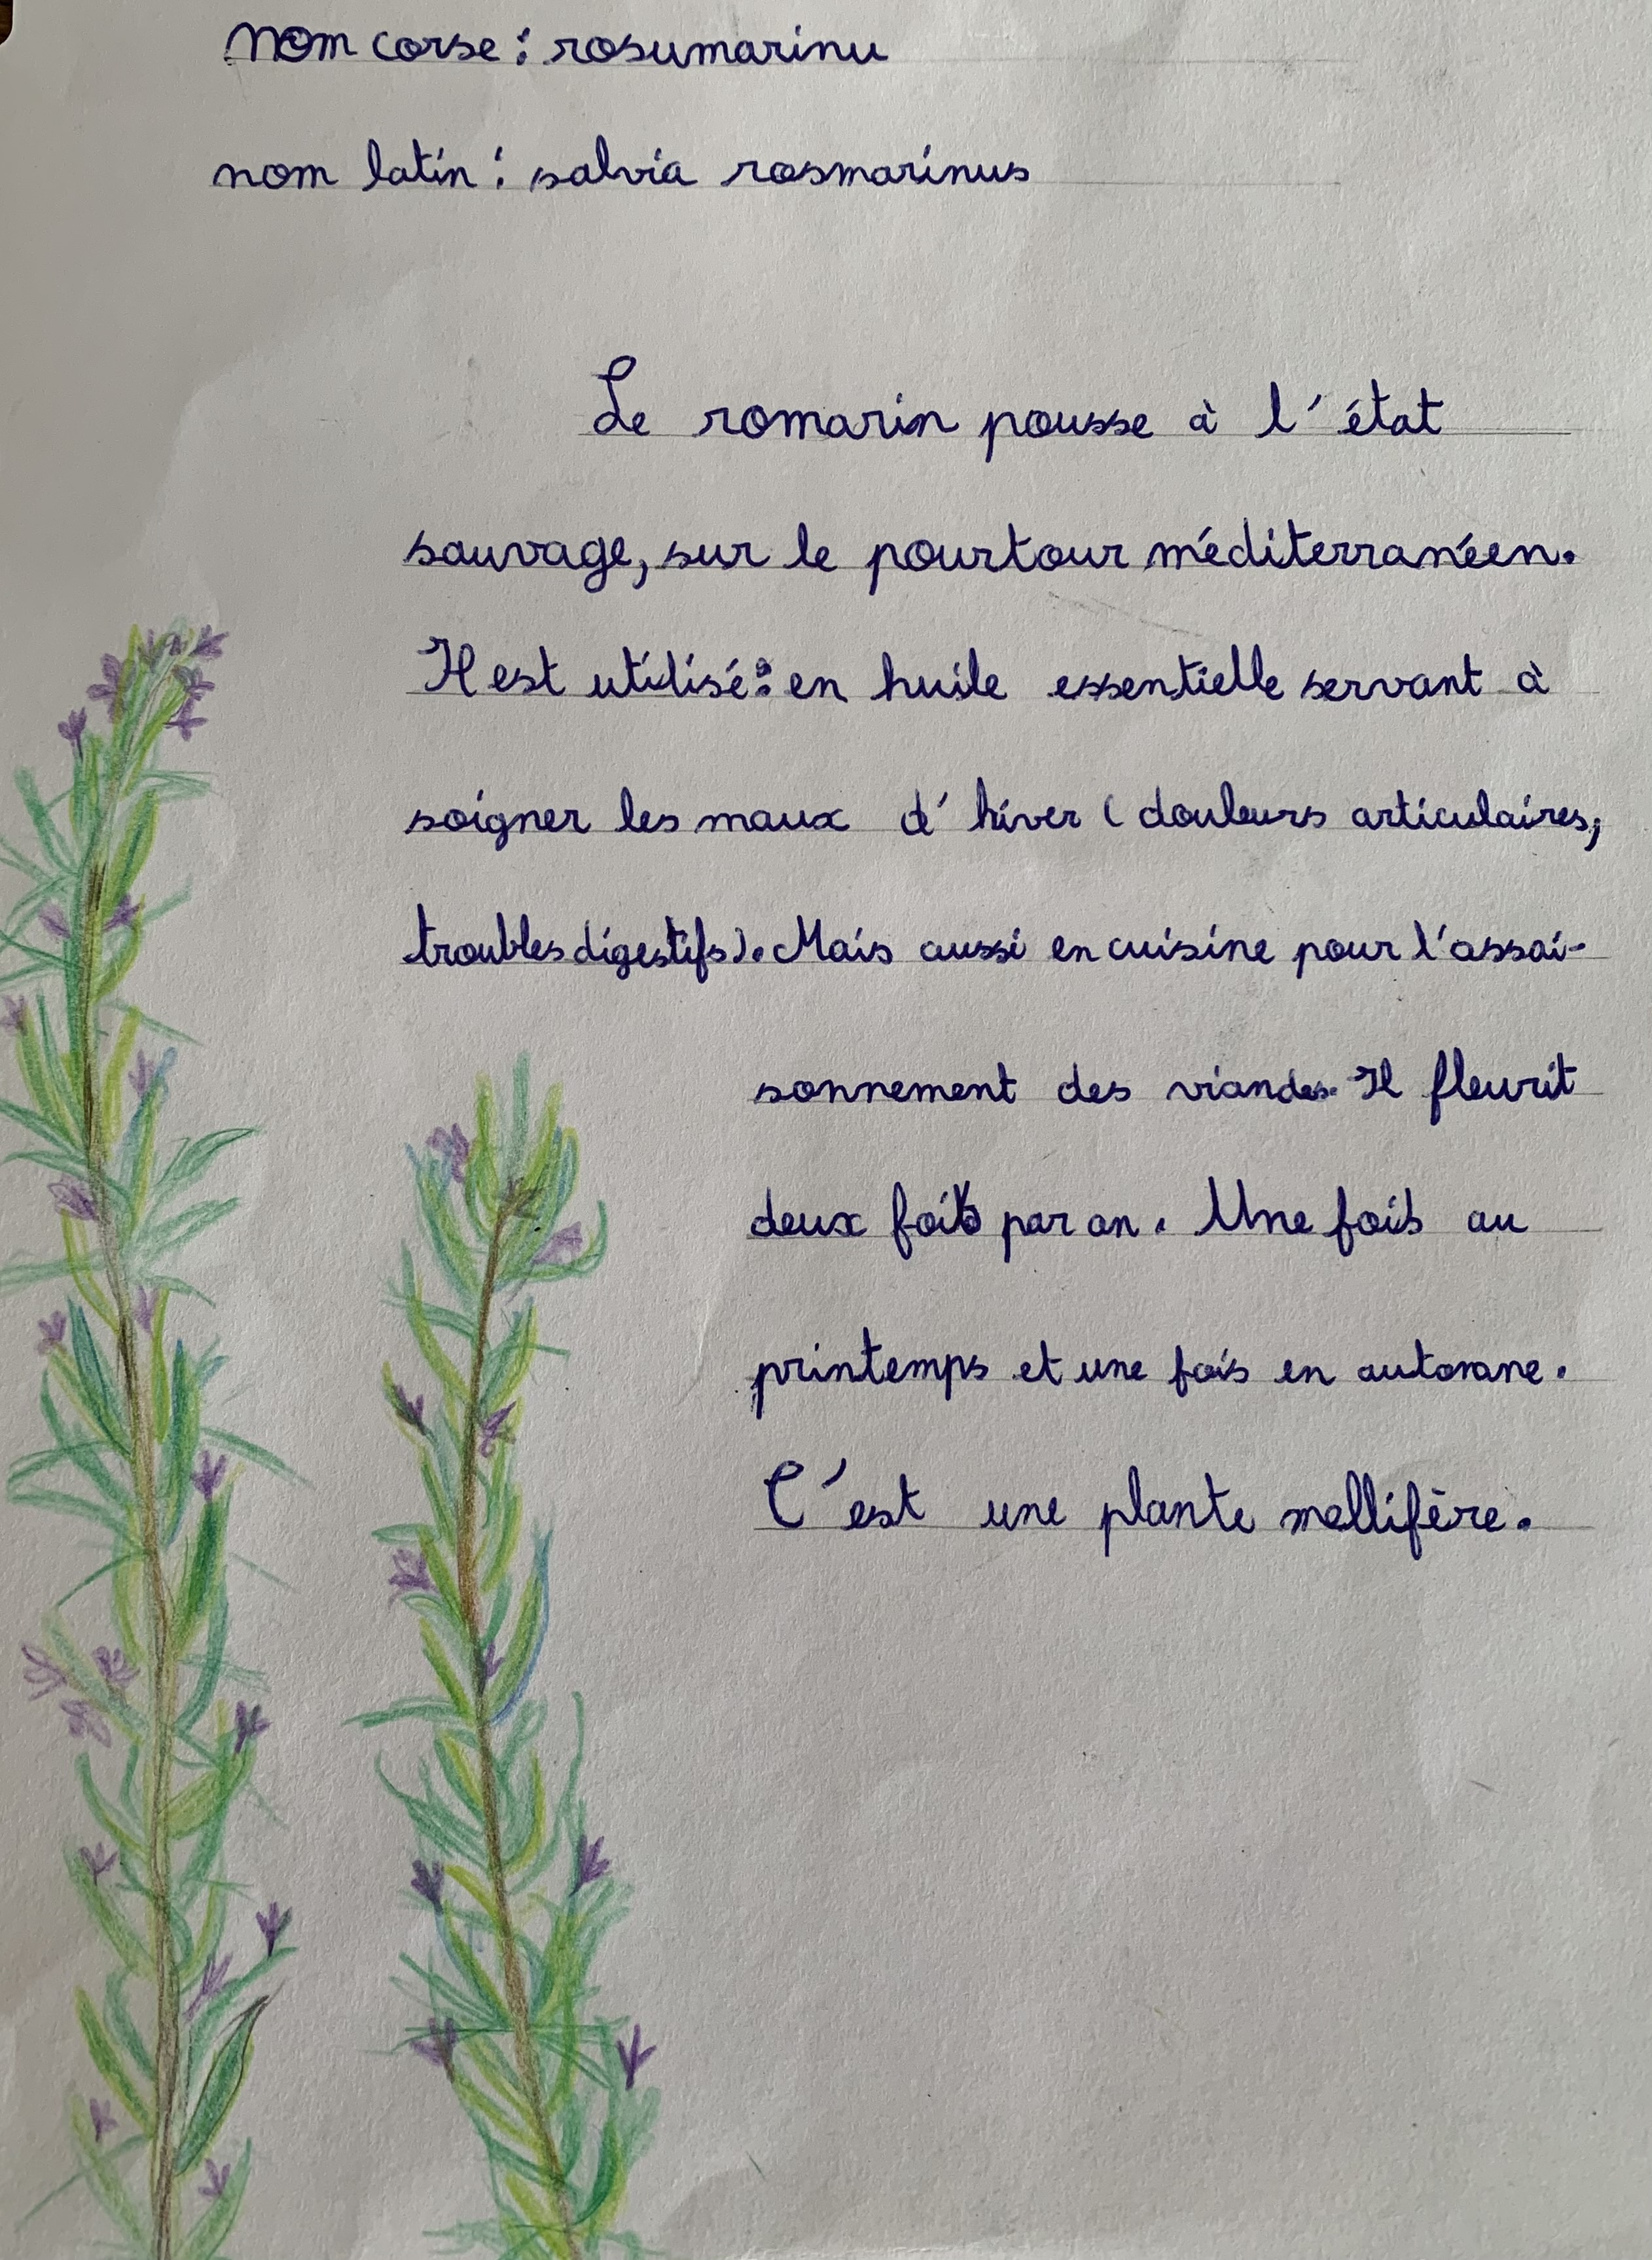 Nom corse : rosumarinu
nom latin : salvia rosmarinus
Le romarin pousse à l'état
sauvage, sur le pourtour méditerranéen.
Il est utilisé : en huile essentielle servant à
soigner les maux d'hiver (douleurs articulaires,
troubles digestifs). Mais aussi en cuisine pour l'assai-
sonnement des viandes. Il fleurit
deux fois par an. Une fois au
printemps et une fois en automne.
C'est une plante mellifère.